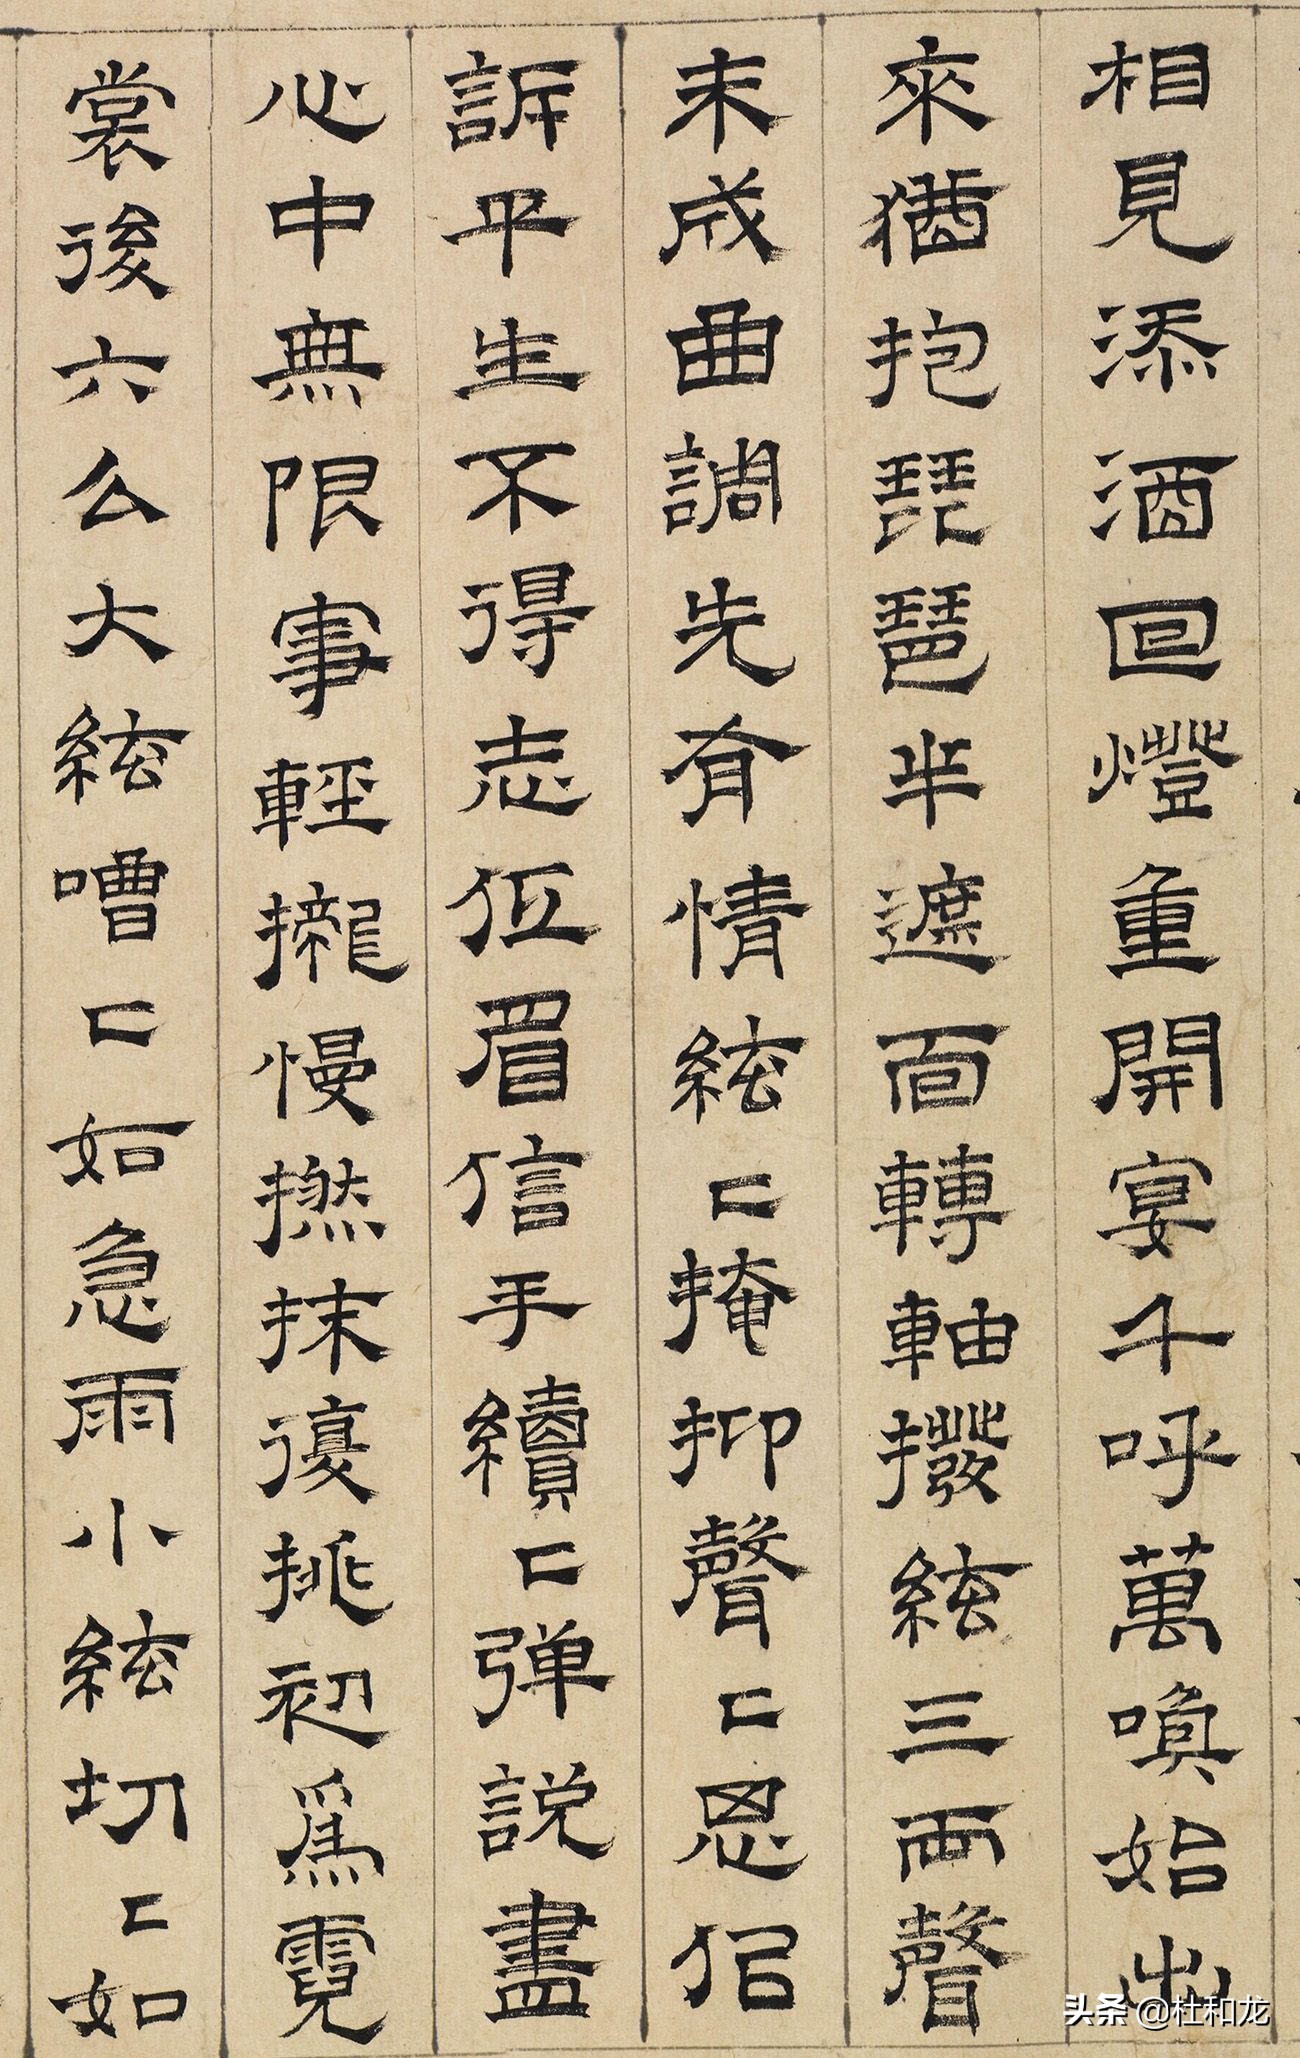 相見添酒回燈重開宴千呼萬喚始出
來猶抱琵琶半遮面轉軸撥絃三兩聲
未成曲調先有情絃〻掩抑聲〻思佀
訴平生不得志低眉信手續〻弹説盡
心中無限事輕攏慢撚抹復挑初爲霓
裳後六么大絃嘈〻如急雨小絃切〻如
头条 @杜和龙